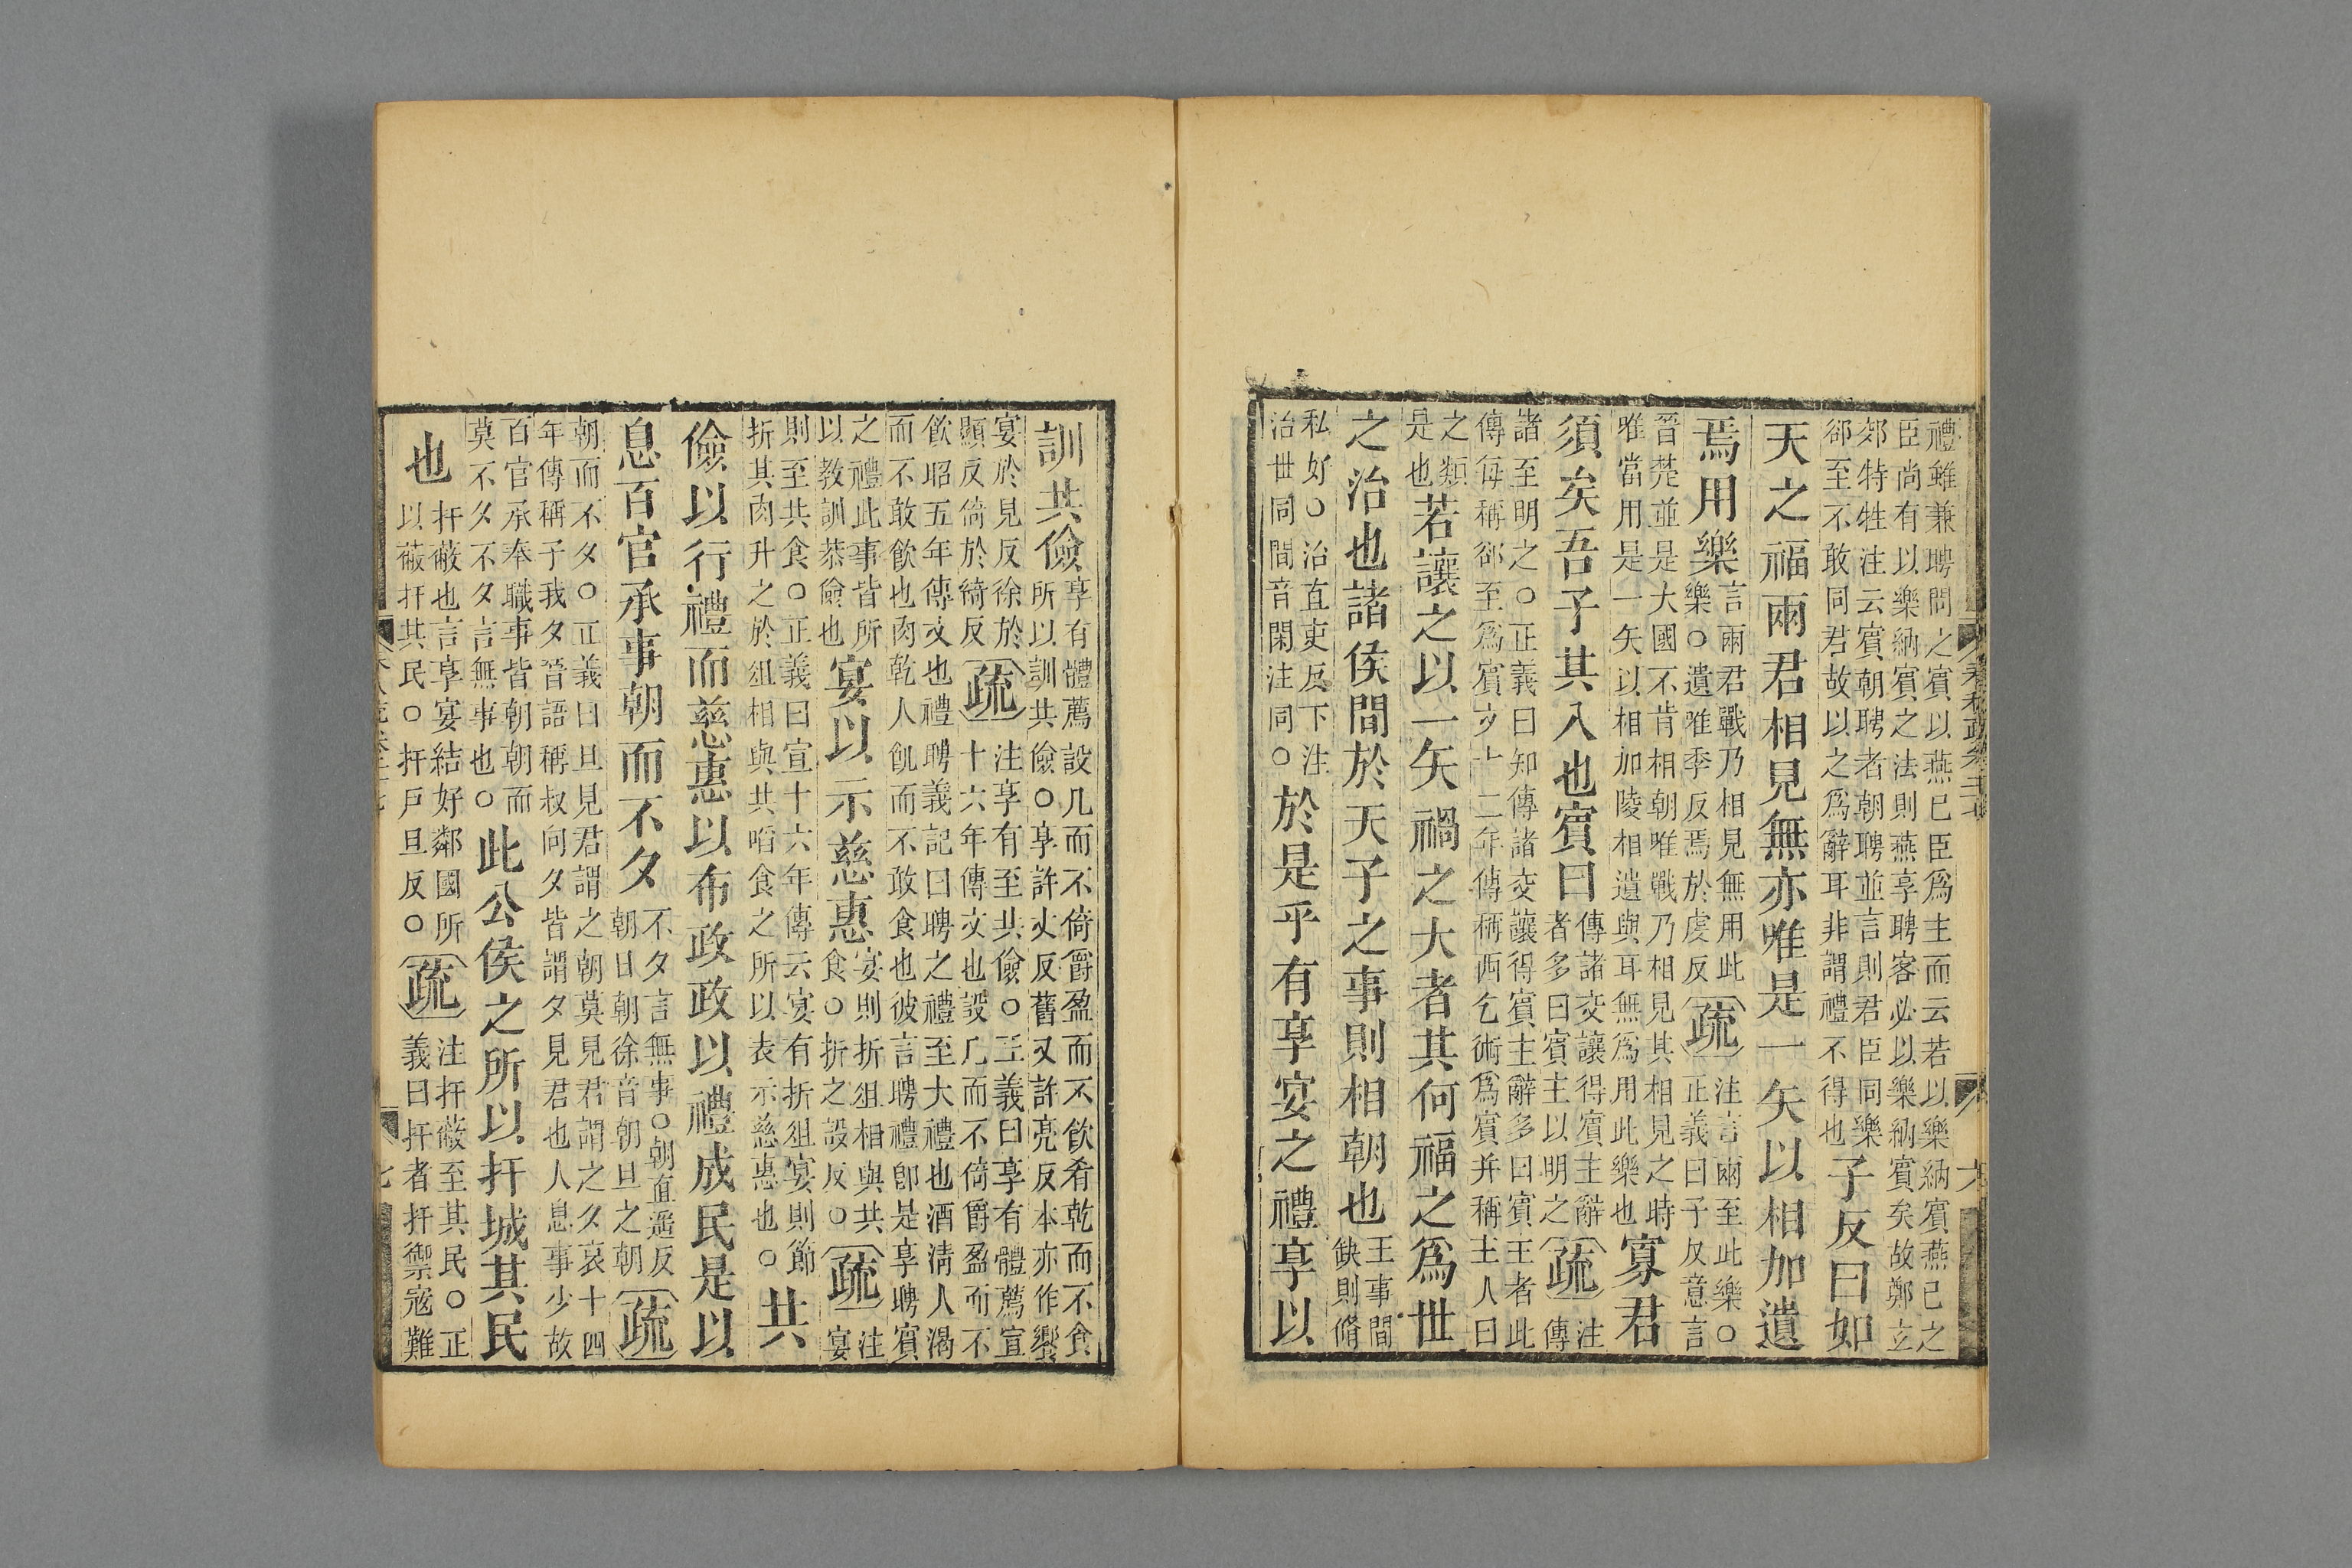 禮雖兼聘問之賓以燕已臣爲主而云若以樂納賓燕已之
臣尚有以樂納賓之法則燕享聘客必以樂納賓矣故鄭立
郊特牲注云賓朝聘者朝聘並言則君臣同樂
郤至不敢同君故以之爲辭耳非謂禮不得也
子反曰如
天之福兩君相見無亦唯是一矢以相加遺
焉用樂
言兩君戰乃相見無用此
樂○遺唯季反焉於虔反
疏
注言兩至此樂○
正義曰子反意言
晉楚並是大國不肯相朝唯戰乃相見其相見之時
唯當用是一矢以相加陵相遺與耳無爲用此樂也
寡君
須矣吾子其入也賓曰
傳諸交讓得賓主辭
者多曰賓主以明之
疏
注
傳
諸至明之○正義曰知傳諸交讓得賓主辭多曰賓主者此
傳每稱郤至爲賓文十二年傳稱西乞術爲賓并稱主人曰
之類
是也
若讓之以一矢禍之大者其何福之爲世
之治也諸侯間於天子之事則相朝也
王事間
缺則脩
私好○治直吏反下注
治世同間音閑注同○
於是乎有享宴之禮享以
訓共儉
享有體薦設几而不倚爵盈而不飲肴乾而不食
所以訓共儉○享許丈反舊又許亮反本亦作饗
宴於見反徐於
顯反倚於綺反
疏
注享有至共儉○正義曰享有體薦宣
十六年傳文也設几而不倚爵盈而不
飲昭五年傳文也禮聘義記曰聘之禮至大禮也酒清人渴
而不敢飲也肉乾人飢而不敢食也彼言聘禮卽是享聘賓
之禮此事皆所
以教訓恭儉也
宴以示慈惠
宴則折俎相與共
食○折之設反○
疏
注
宴
則至共食○正義曰宣十六年傳云宴有折俎宴則節
折其肉升之於俎相與共啗食之所以表示慈惠也○
共
儉以行禮而慈惠以布政政以禮成民是以
息百官承事朝而不夕
不夕言無事○朝直遥反
朝日朝徐音朝旦之朝
疏
朝而不夕○正義曰旦見君謂之朝莫見君謂之夕哀十四
年傳稱子我夕晉語稱叔向夕皆謂夕見君也人息事少故
百官承奉職事皆朝朝而
莫不夕不夕言無事也○
此公侯之所以扞城其民
也
扞蔽也言享宴結好鄰國所
以蔽扞其民○扞戶旦反○
疏
注扞蔽至其民○正
義曰扞者扞禦寇難